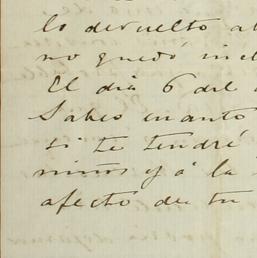 lo devuelto al
no quedó incl
El dia 6 del
Sabes cuanto
si te tendré
niños y á la
afecto de tu